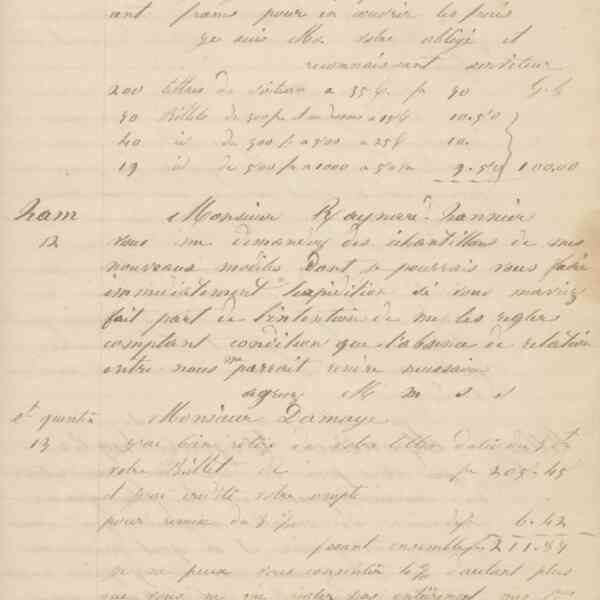 cent francs pour en couvrir les frais
Je suis Mr votre obligé et
reconnaissant serviteur
200 lettres de voiture a 35 f. 70
70 Billets de 300 f. et au dessous a 15 f 10.50
40 id de 300 f a 500 a 25 f 10.
19 id de 500 f a 1000 a 50 9.50 100.00
Ham Monsieur Raynard
12 vous me demandez des échantillons de mes
nouveaux modèles dont je pourrais vous faire
immédiatement l'expédition si vous m'aviez
fait part de l'intention de me les regler
comptant condition que l'absence de relation
entre nous me parait rendre necessaire
agréez M m s s
St quentin Monsieur Damaye
13 j'ai bien retiré de votre lettre datée du
votre Billet de f 205.45
et j'ai crédité votre compte
pour remise de 3 % de 6.42
faisant ensemble f. 211.87
je ne peux vous consentir % d'autant plus
que vous ne me pas entièrement mes